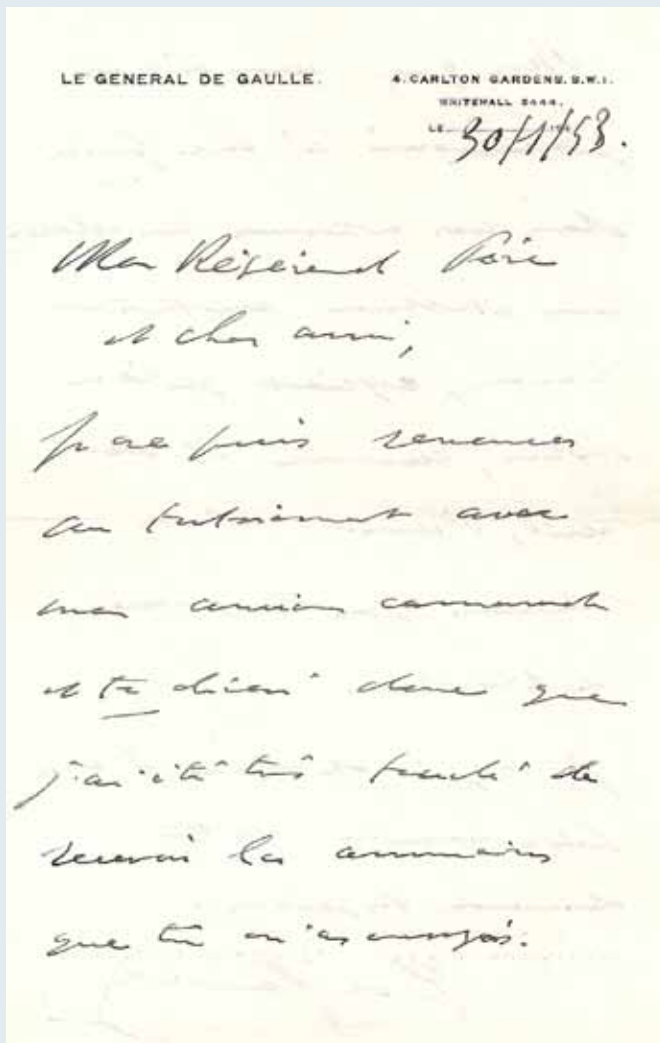 LE GENERAL DE GAULLE.
4, CARLTON GARDENS. S.W.1.
WHITEHALL 5444.
LE 30/1/43.
Mon Révérend Père
et cher ami,
Je ne puis renoncer
au tutoiement avec
mon ancien camarade
et te dirai donc que
j'ai été très touché de
recevoir les annuaires
que tu m'as envoyés.